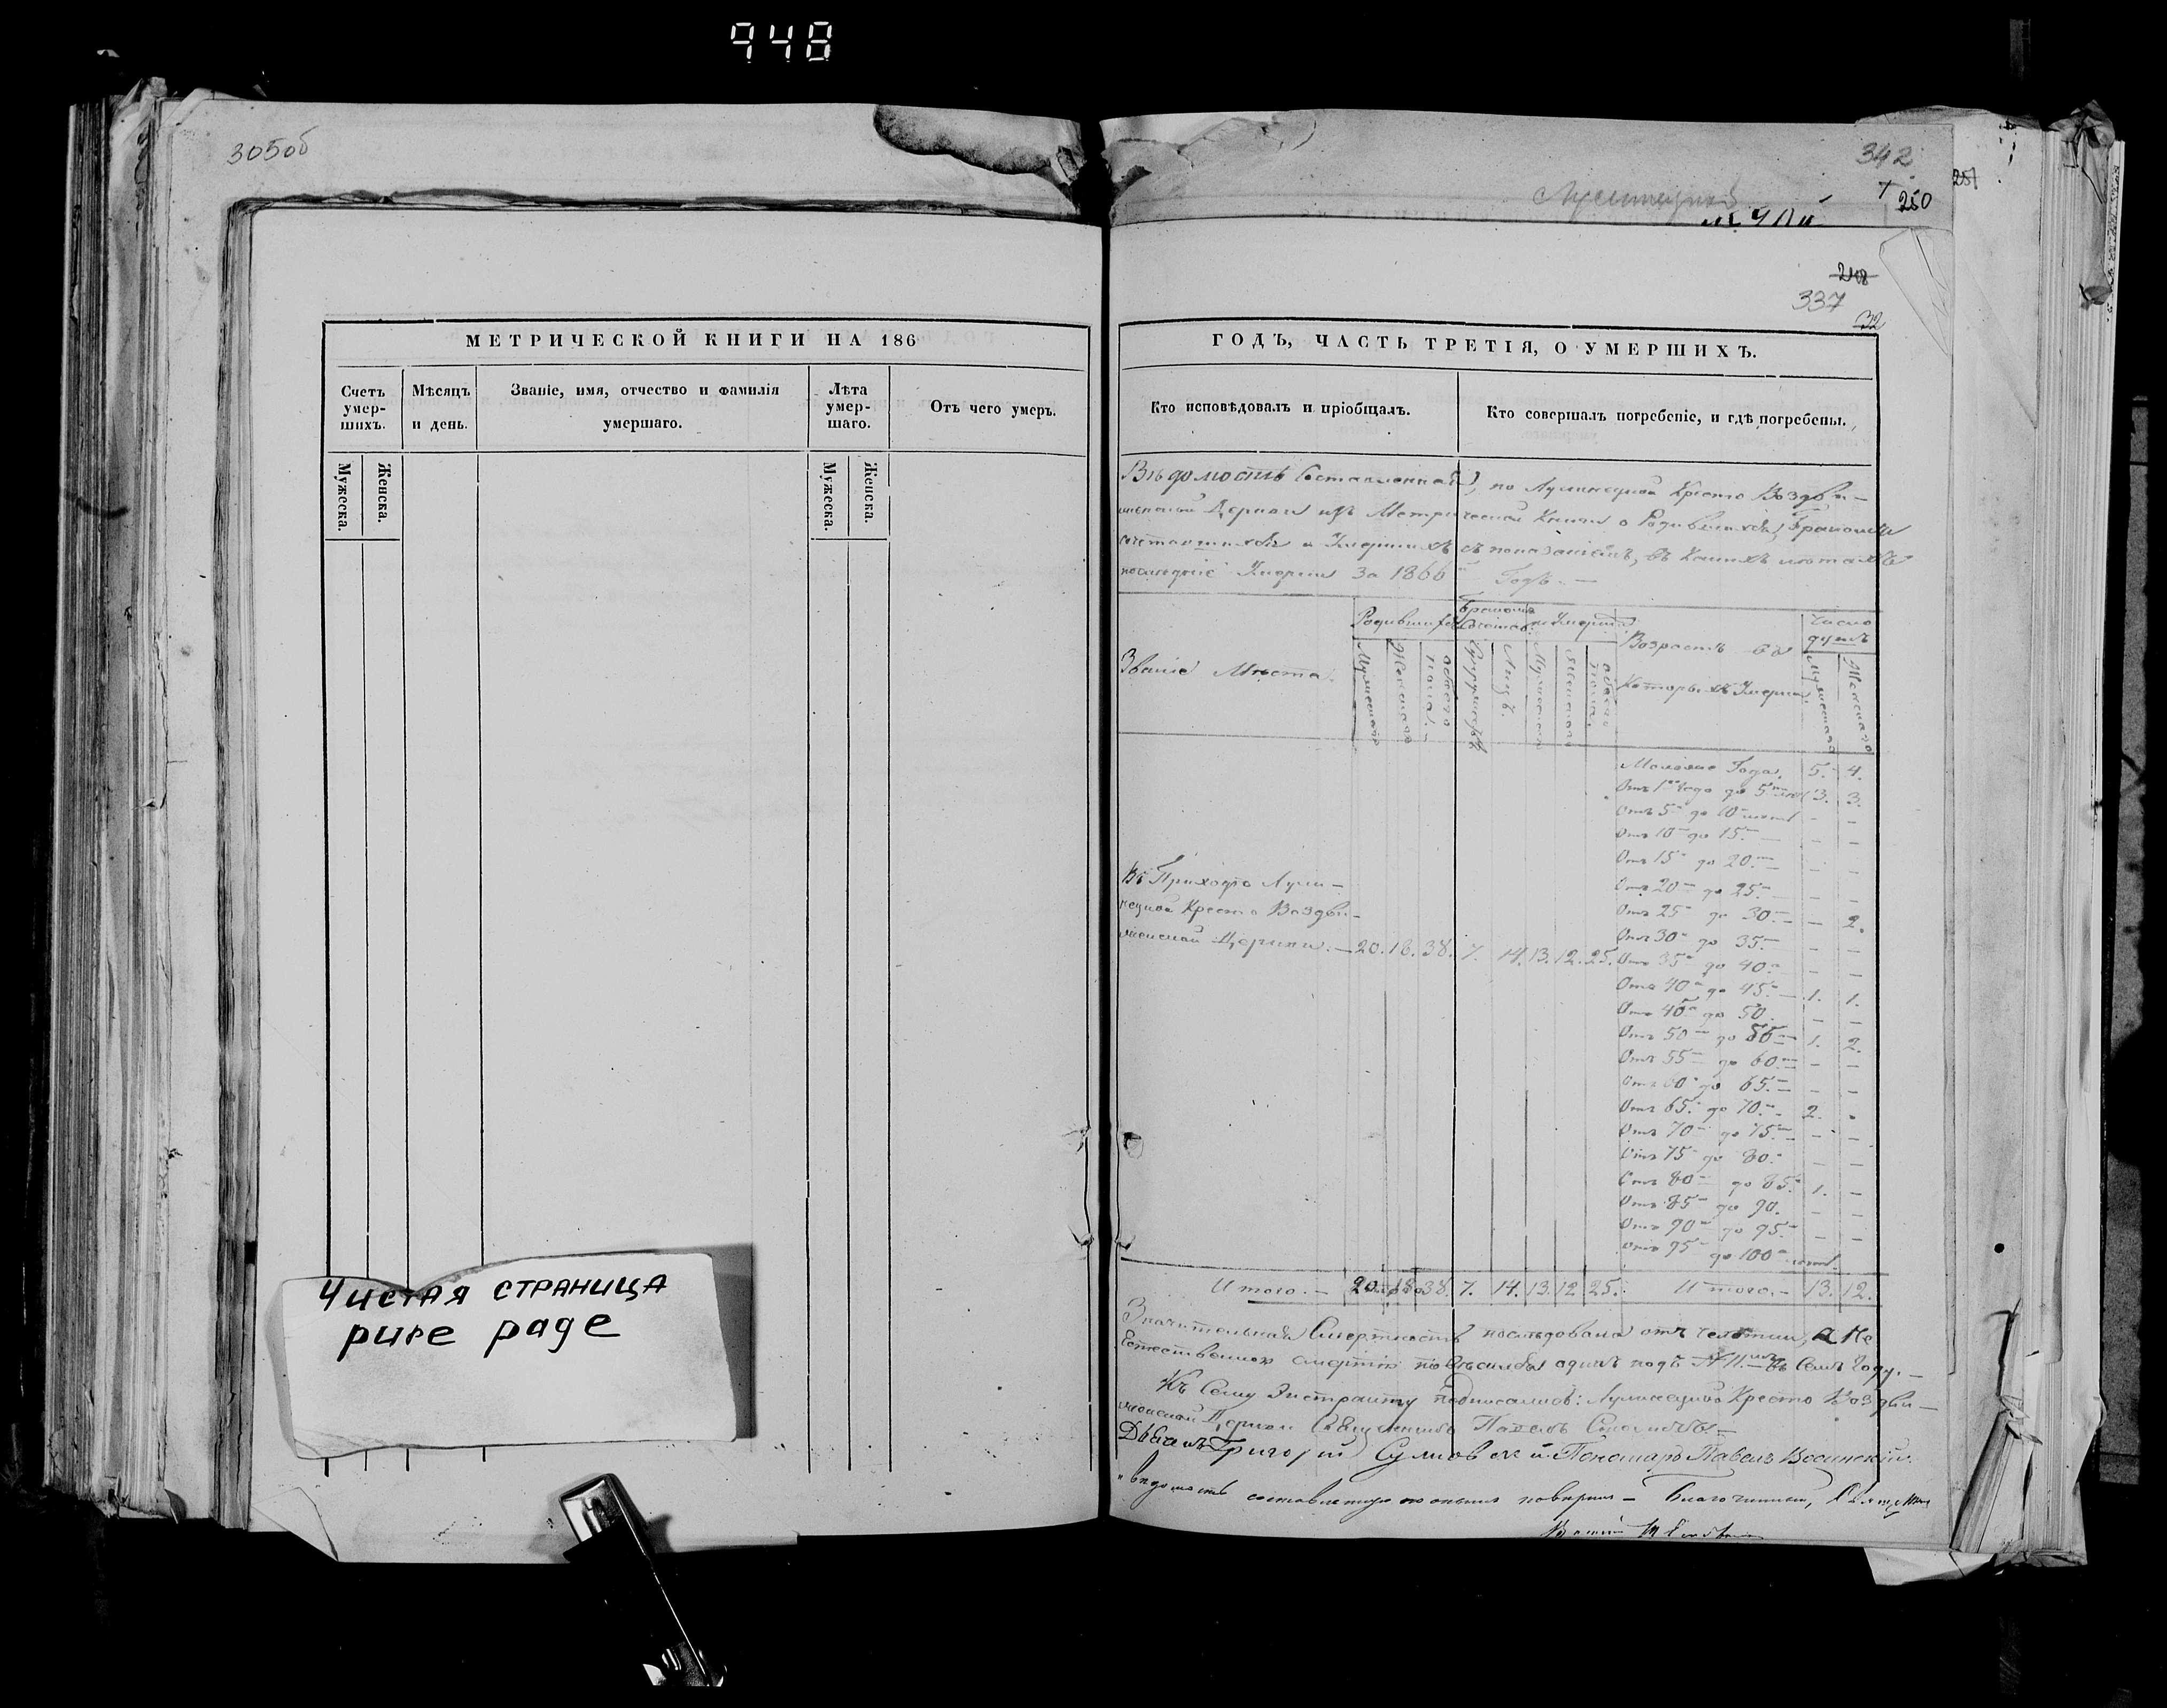 948
305об
342
251
250
МЕТРИЧЕСКОЙ КНИГИ НА 186
Счетъ умер- шихъ.
Мѣсяцъ и день.
Званіе, имя, отчество и фамилія умершаго.
Лѣта умер- шаго.
Отъ чего умеръ.
Мужеска.
Женска.
Мужеска.
Женска.
Чистая страница
pure page
248
337
32
ГОДЪ, ЧАСТЬ ТРЕТІЯ, О УМЕРШИХЪ.
Кто исповѣдовалъ и пріобщалъ.
Кто совершалъ погребеніе, и гдѣ погребены.
Вѣдомость Составленная, по Кресто Воздви-
женской Церкви изъ Метрической Книги о Родившихся, Бракомъ
сочетавшихся и Умершихъ съ показаніемъ, въ Коихъ лѣтахъ
послѣдніе Умерли За 1866 Годъ. —
Званіе Мѣста.
Родившихся
Мужескаго
Женскаго
обоего пола.
Бракомъ
Супружествъ
Лицъ.
Умерши
Мужескаго
Женскаго
обоего пола.
Возрастъ въ Которыхъ Умерли.
Число душъ
Мужескаго
Женскаго
Менѣе Года. 5. 4.
Отъ 1го Года до 5 лѣтъ 3. 3.
Отъ 5 до 10 лѣтъ - -
Отъ 10 до 15. - -
Отъ 15 до 20. - -
Отъ 20 до 25. - -
Отъ 25 до 30. - 2.
Отъ 30 до 35. - -
Отъ 35 до 40. - -
Отъ 40 до 45. 1. 1.
Отъ 45 до 50. - -
Отъ 50 до 55 1. 2.
Отъ 55 до 60. - -
Отъ 60 до 65. - -
Отъ 65. до 70. 2. -
Отъ 70 до 75. - -
Отъ 75 до 80. - -
Отъ 80 до 85. 1. -
Отъ 85 до 90. - -
Отъ 90 до 95. - -
Отъ 95 до 100 лѣтъ.
Въ Приходѣ
Кресто Воздви-
женской Церкви. — 20. 18. 38. 7. 14. 13. 12. 25.
Итого. — 20. 18. 38. 7. 14. 13. 12. 25. Итого. — 13. 12.
Значительная Смертность послѣдовала отъ а Не
Естественною смертію одинъ подъ № 11. въ Семъ Году. —
Къ Сему Экстракту подписались: Кресто Воздви-
женской Церкви Священникъ Павелъ
Дьячекъ Григорій и Пономарь Павелъ
вѣдомость повѣрилъ — Благочинный,